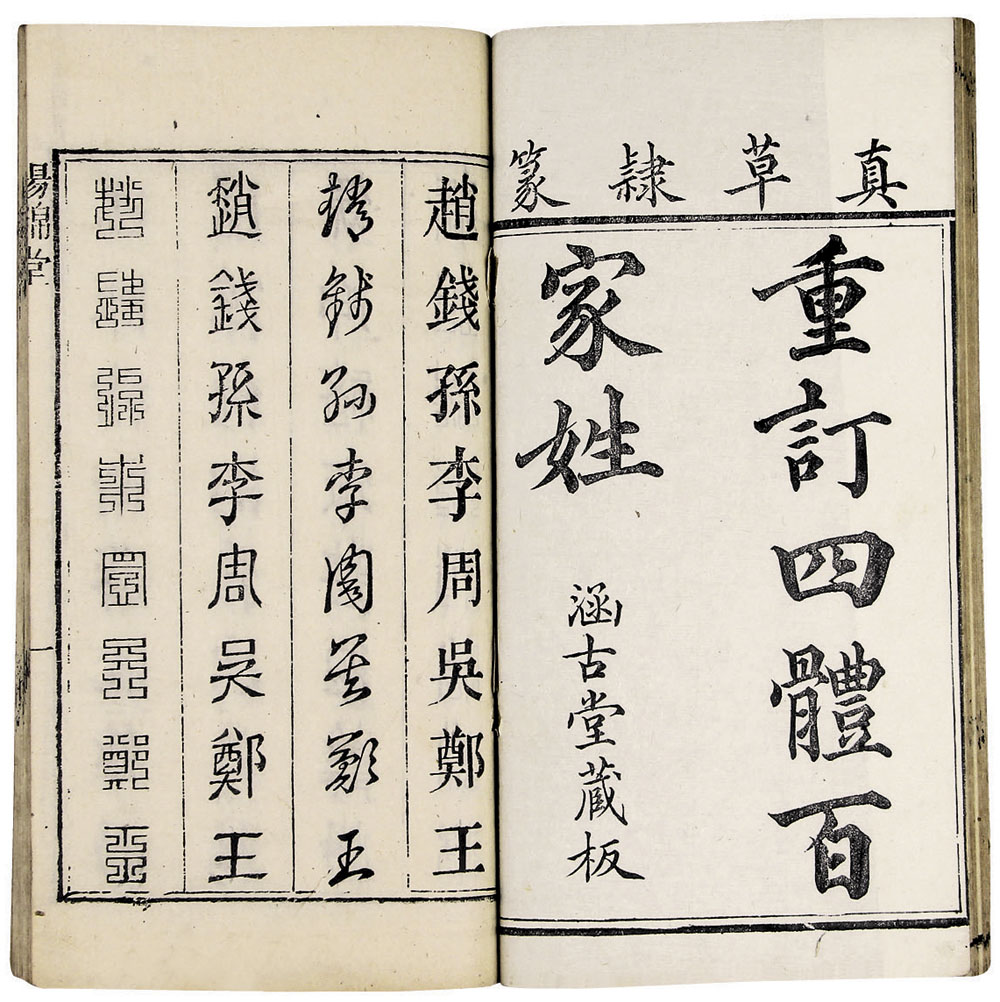 真草隸篆
重訂四體百
家姓
涵古堂藏板
趙錢孫李周吳鄭王
趙錢孫李周吳鄭王
趙錢孫李周吳鄭王
趙錢孫李周吳鄭王
錦堂
一